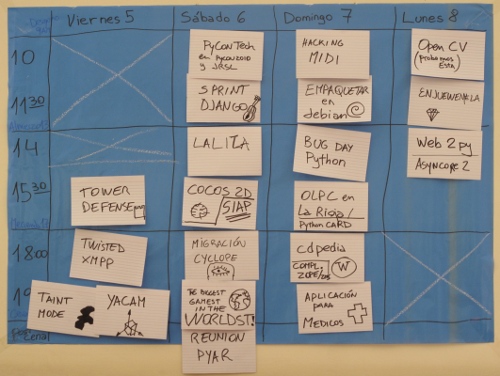 Viernes 5
Sábado 6
Domingo 7
Lunes 8
10
PyCon Tech
en pycon2010
y JASSL
HACKING
MIDI
Open CV
11 30
SPRINT
DJANGO
EMPAQUETAR
en
debian
ENJUEWEMELA
14
LALITA
BUG DAY
Python
Web 2 py
ASYNCORE 2
15 30
TOWER
DEFENSE
COCOS 2D
SIAP
OLPC en
La Rioja/
Python CARD
18:00
TWISTED
XMPP
MIGRACIÓN
CYCLOPE
cdpedia
W
19
TAINT
MODE
YACAM
THE BIGGEST
GAMEST
IN THE
WORLDST!
APLICACIÓN
PARA
MEDICOS
REUNION
PYAR